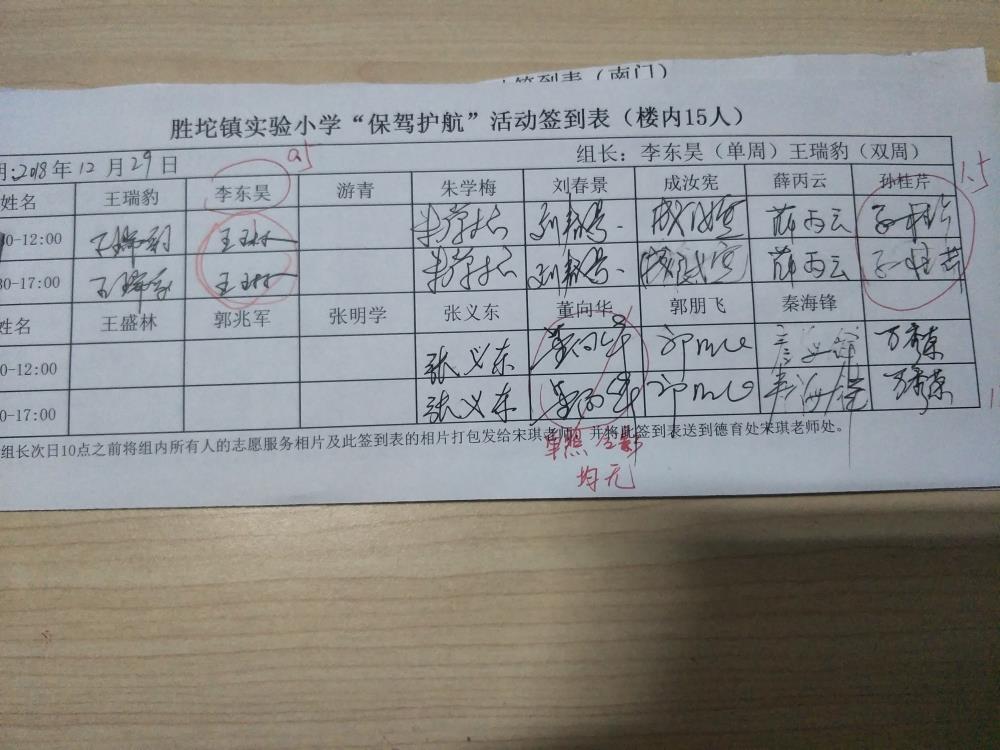 签到表（南门）
胜坨镇实验小学“保驾护航”活动签到表（楼内15人）
期:2018年12月29日 组长：李东昊（单周）王瑞豹（双周）
姓名 王瑞豹 李东昊 游青 朱学梅 刘春景 成汝宪 薛丙云 孙桂芹 1.5
0-12:00 王瑞豹 王玉林 朱学梅 刘春景 成汝宪 薛丙云 孙桂芹
30-17:00 王瑞豹 王玉林 朱学梅 刘春景 成汝宪 薛丙云 孙桂芹
姓名 王盛林 郭兆军 张明学 张义东 董向华 郭朋飞 秦海锋
0-12:00 张义东 董向华 秦海锋
0-17:00 张义东 董向华 秦海锋
组长次日10点之前将组内所有人的志愿服务相片及此签到表的相片打包发给宋琪老师，并将此签到表送到德育处宋琪老师处。
单照合影
均无